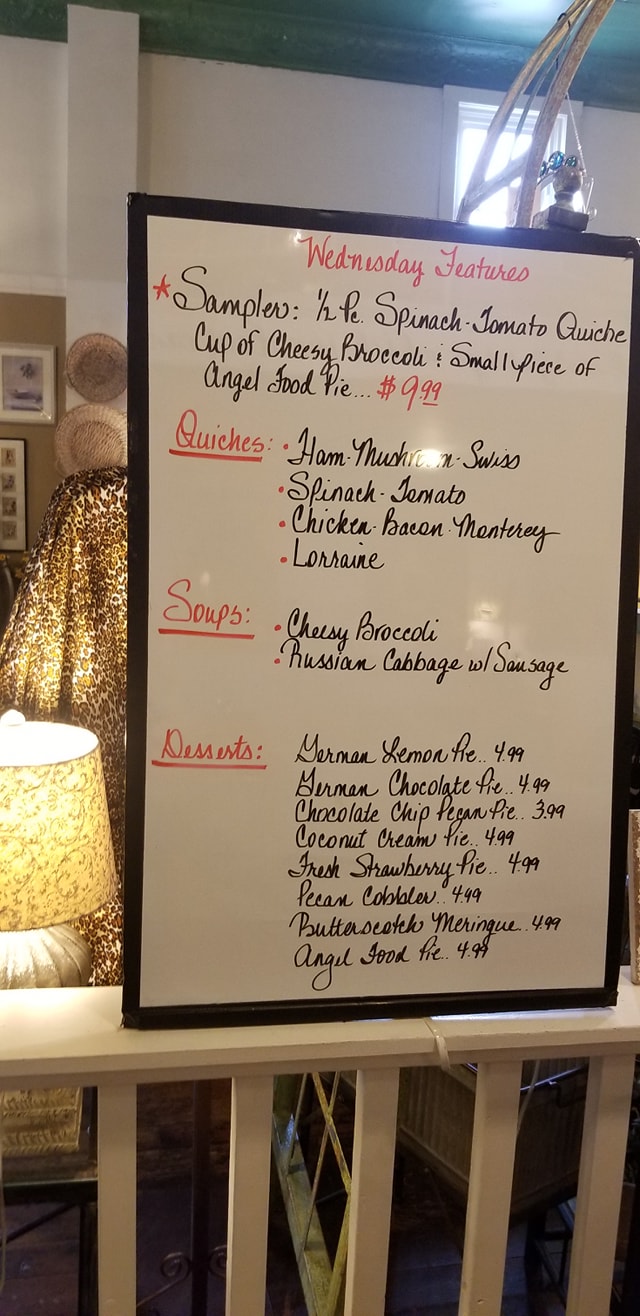 Wednesday Features
* Sampler: 1/2 Pc. Spinach-Tomato Quiche
Cup of Cheesy Broccoli & Small piece of
Angel Food Pie... $9.99
Quiches: • Ham-Mushroom-Swiss
• Spinach-Tomato
• Chicken-Bacon-Monterey
• Lorraine
Soups: • Cheesy Broccoli
• Russian Cabbage w/ Sausage
Desserts: German Lemon Pie.. 4.99
German Chocolate Pie.. 4.99
Chocolate Chip Pecan Pie.. 3.99
Coconut Cream Pie.. 4.99
Fresh Strawberry Pie.. 4.99
Pecan Cobbler.. 4.99
Butterscotch Meringue.. 4.99
Angel Food Pie.. 4.99